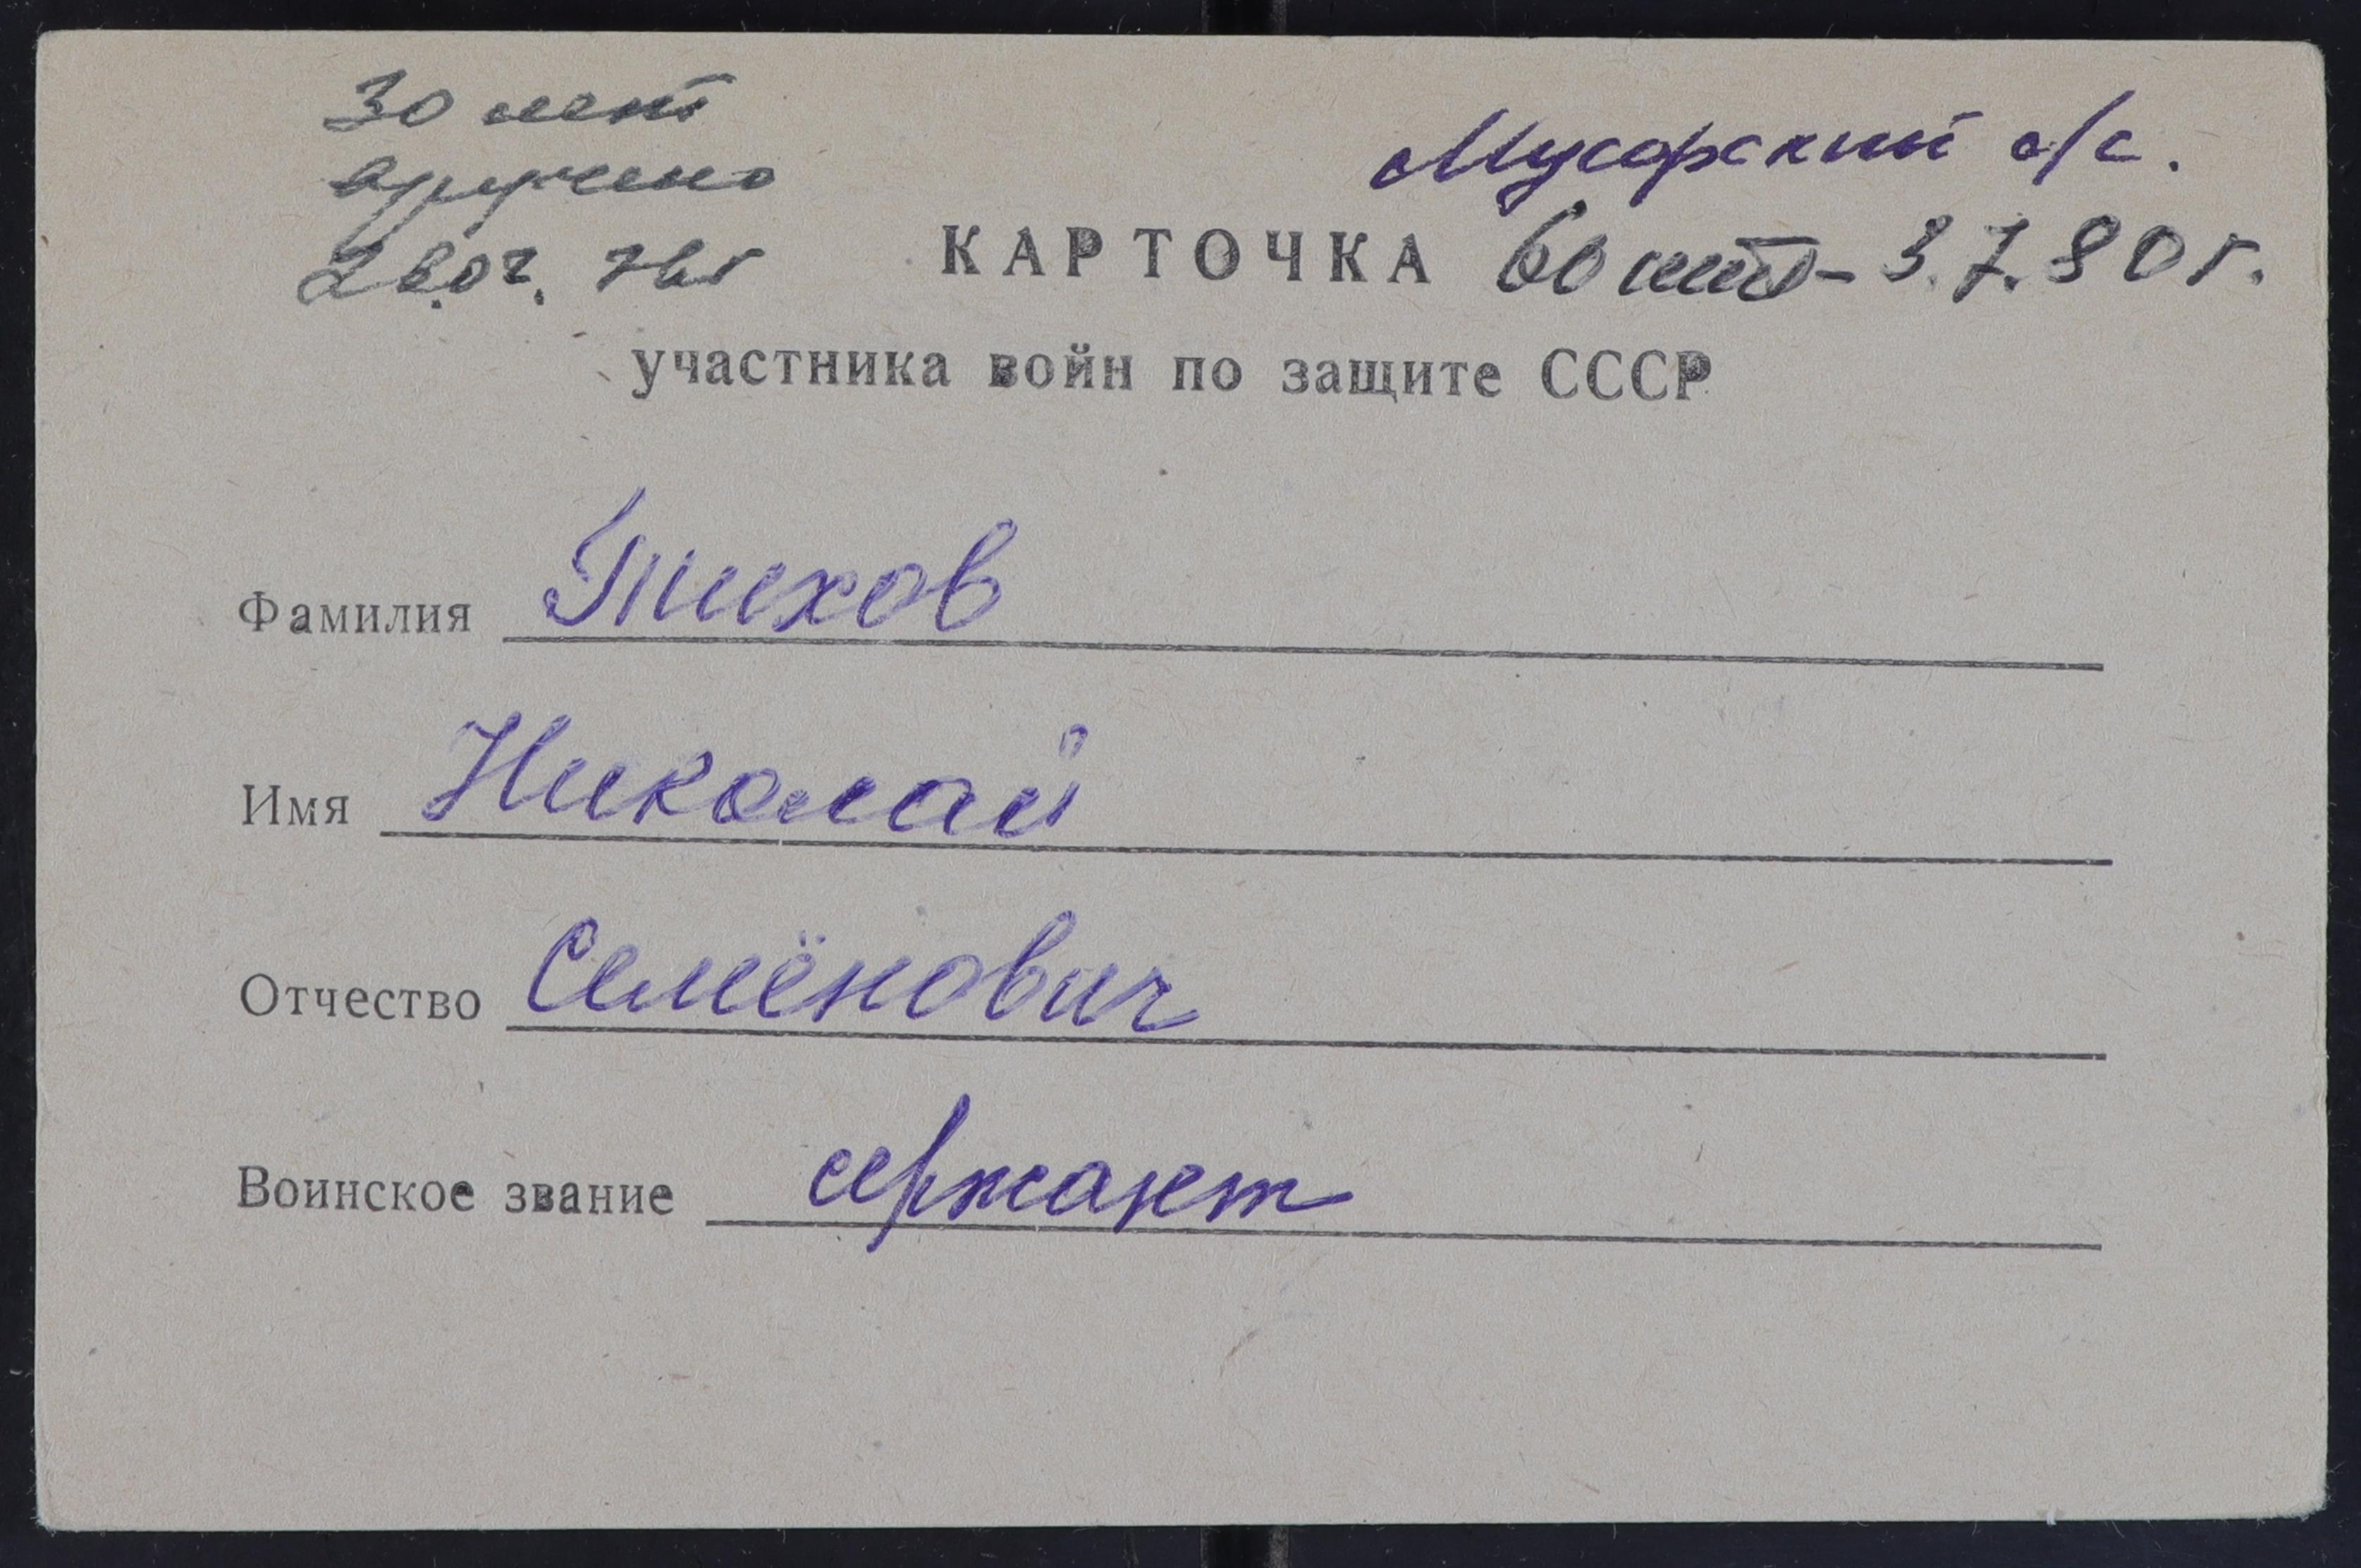 30 лет
вручено
Мусорский с/с.
КАРТОЧКА 60 лет - 3.7.80 г.
участника войн по защите СССР
Фамилия Тихов
Имя Николай
Отчество Семёнович
Воинское звание сержант